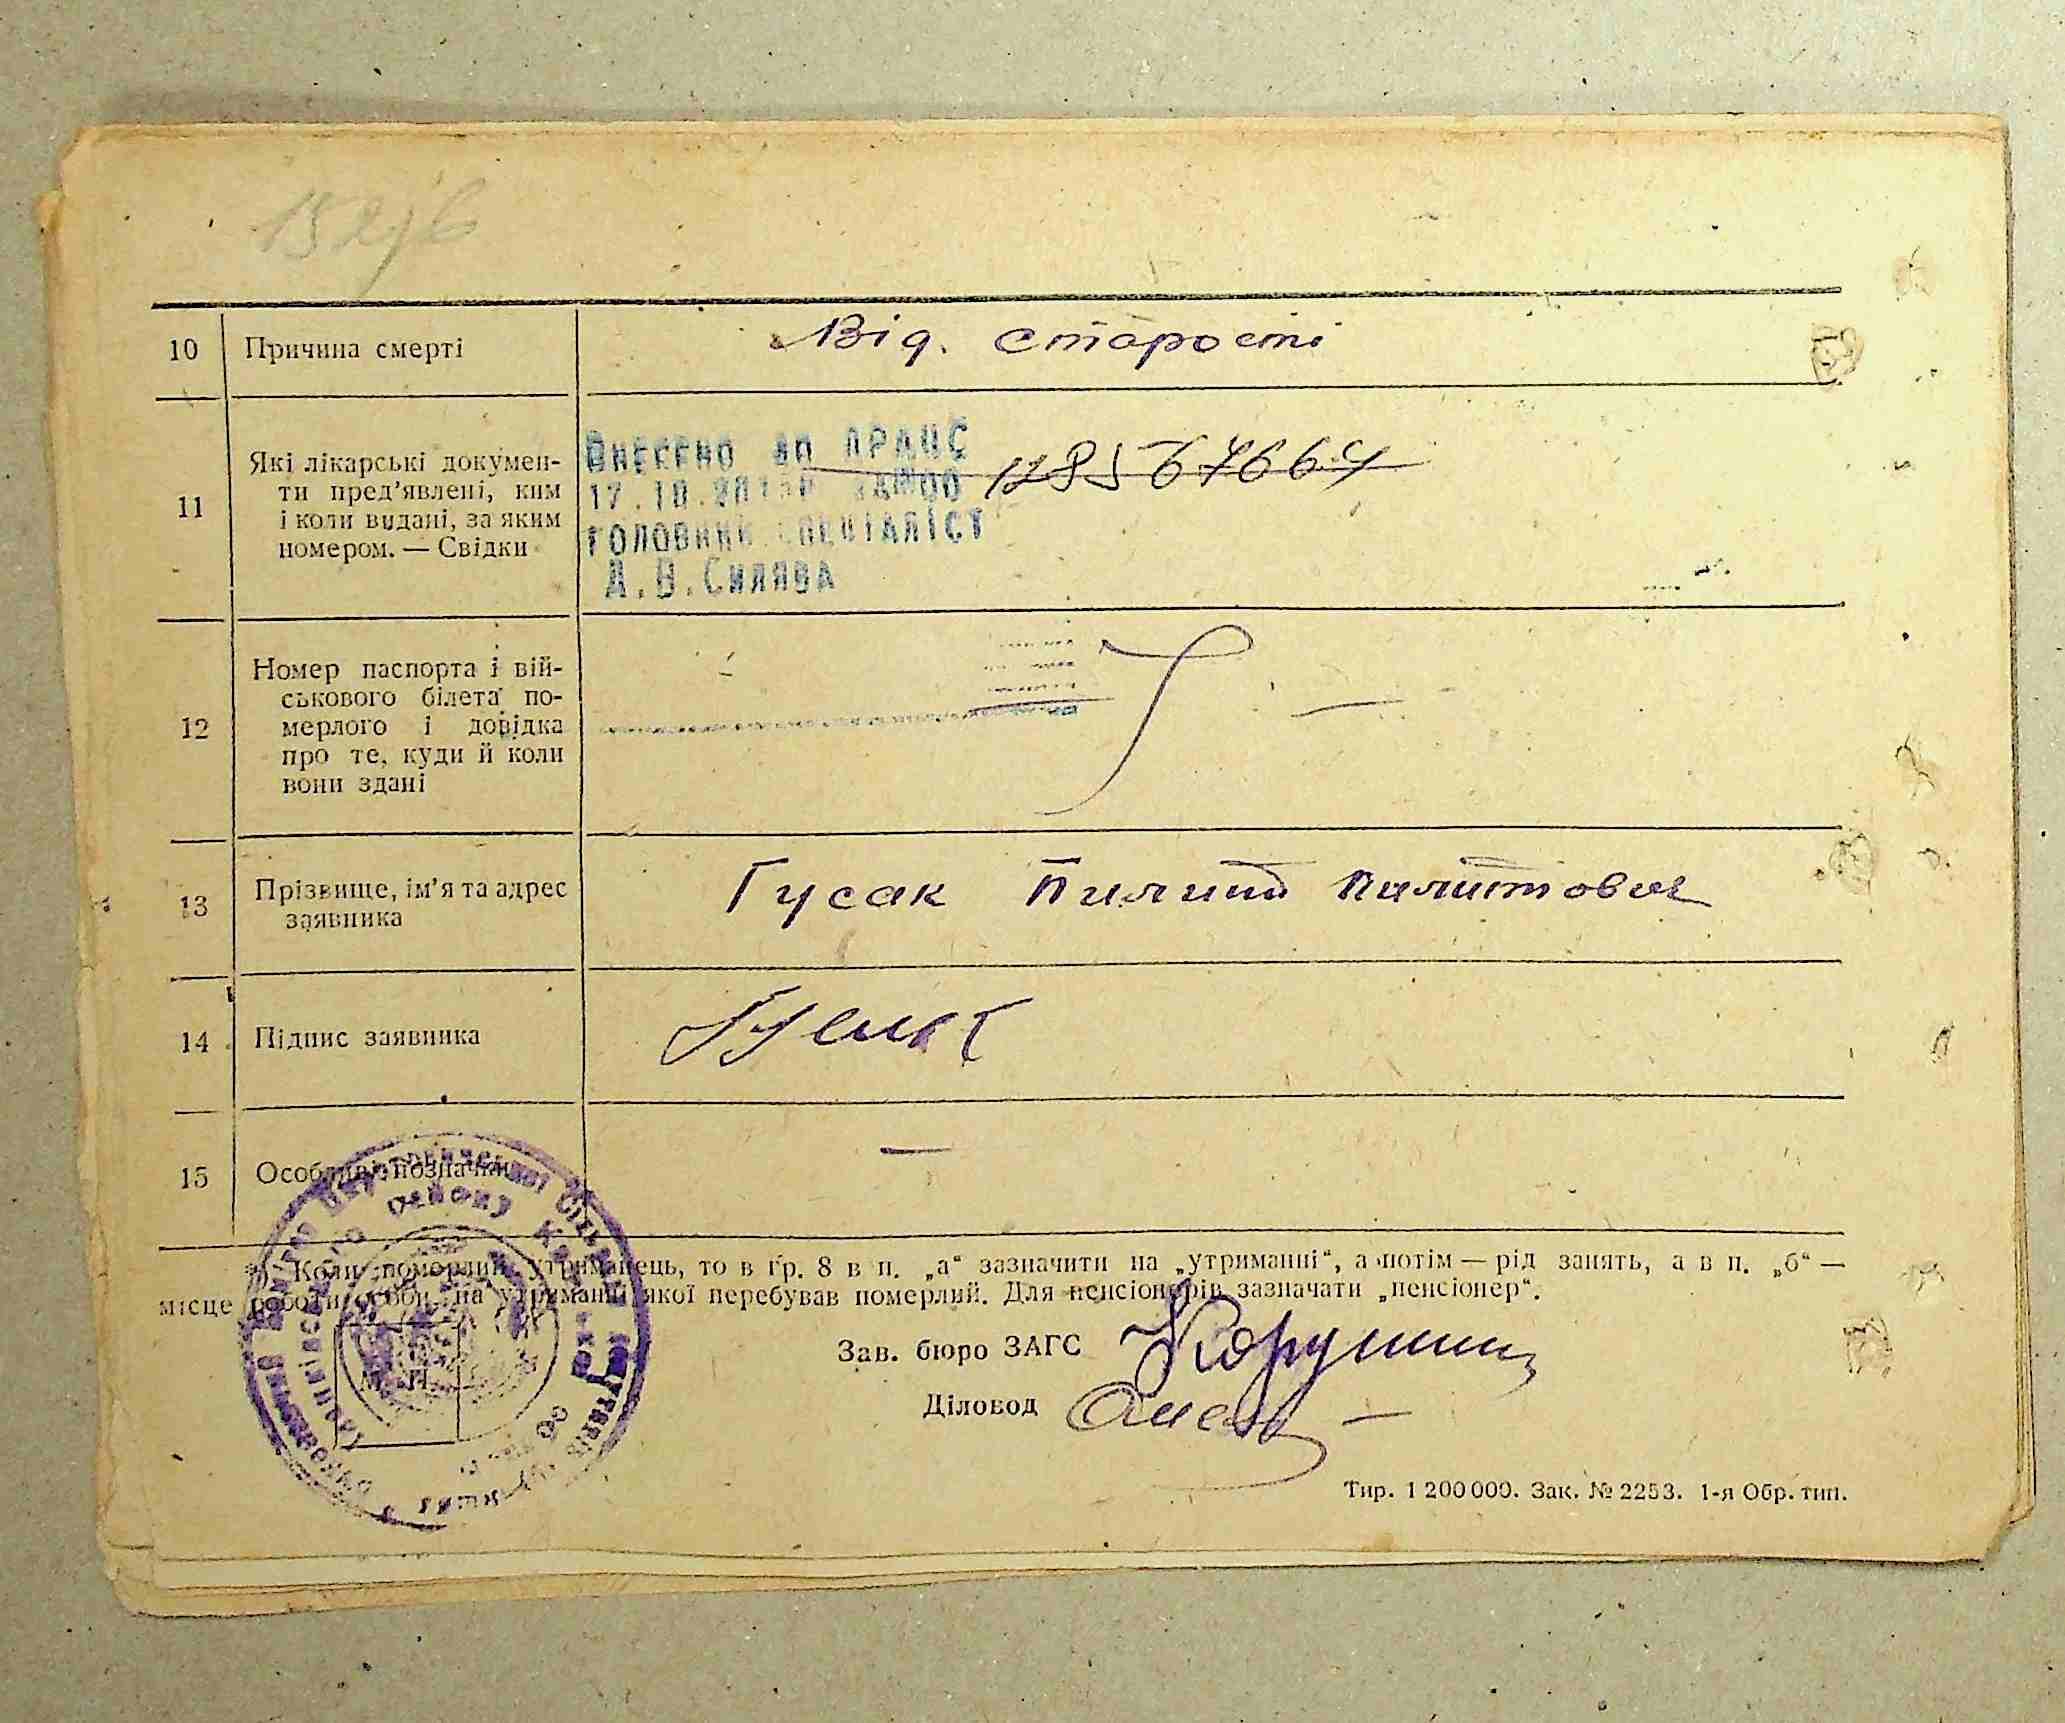 10 Причина смерті Від. старости
11 Які лікарські докумен-
ти пред’явлені, ким
і коли видані, за яким
номером. — Свідки
Внесено до ДРАЦС
17.10.
головний спеціаліст
А.В.Силява
12 Номер паспорта і вій-
ськового білета по-
мерлого і довідка
про те, куди й коли
вони здані
13 Прізвище, ім’я та адрес
заявника
Гусак Пилип
14 Підпис заявника Гусак
15 Особливі позначки —
*) Коли померлий утриманець, то в гр. 8 в п. „а“ зазначити на „утриманні“, а потім — рід занять, а в п. „б“ —
місце роботи особи, на утриманні якої перебував померлий. Для пенсіонерів зазначати „пенсіонер“.
Зав. бюро ЗАГС
Діловод
М. П.
району
Тир. 1 200 000. Зак. № 2253. 1-я Обр. тип.